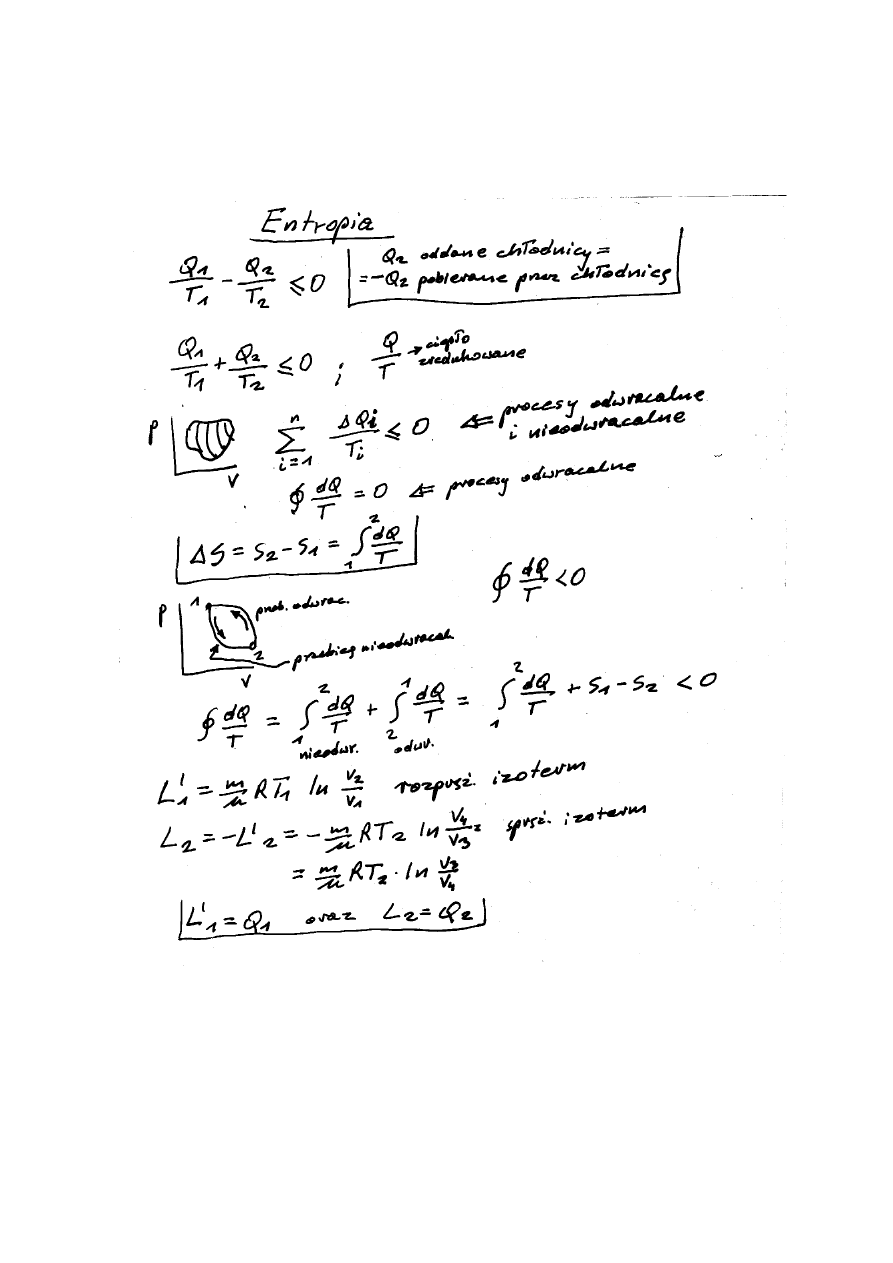 Entropia
Q₁/T₁ - Q₂/T₂ ⩽ 0
Q₂ oddane chłodnicy =
= -Q₂ pobierane przez chłodnicę
Q₁/T₁ + Q₂/T₂ ⩽ 0 ; Q/T → ciepło zredukowane
P
V
∑ᵢ₌₁ⁿ ΔQᵢ/Tᵢ ⩽ 0 ⇐ procesy odwracalne
i nieodwracalne
∮ dQ/T = 0 ⇐ procesy odwracalne
ΔS = S₂ - S₁ = ₁∫² dQ/T
∮ dQ/T < 0
P 1 2 V
przebieg nieodwracal.
∮ dQ/T = ₁∫² dQ/T + ₂∫¹ dQ/T = ₁∫² dQ/T + S₁ - S₂ < 0
nieodwr. odwr.
L'₁ = m/μ RT₁ ln V₂/V₁ rozpręż. izoterm
L₂ = -L'₂ = - m/μ RT₂ ln V₄/V₃ = spręż. izoterm
= m/μ RT₂ · ln V₃/V₄
L'₁ = Q₁ oraz L₂ = Q₂